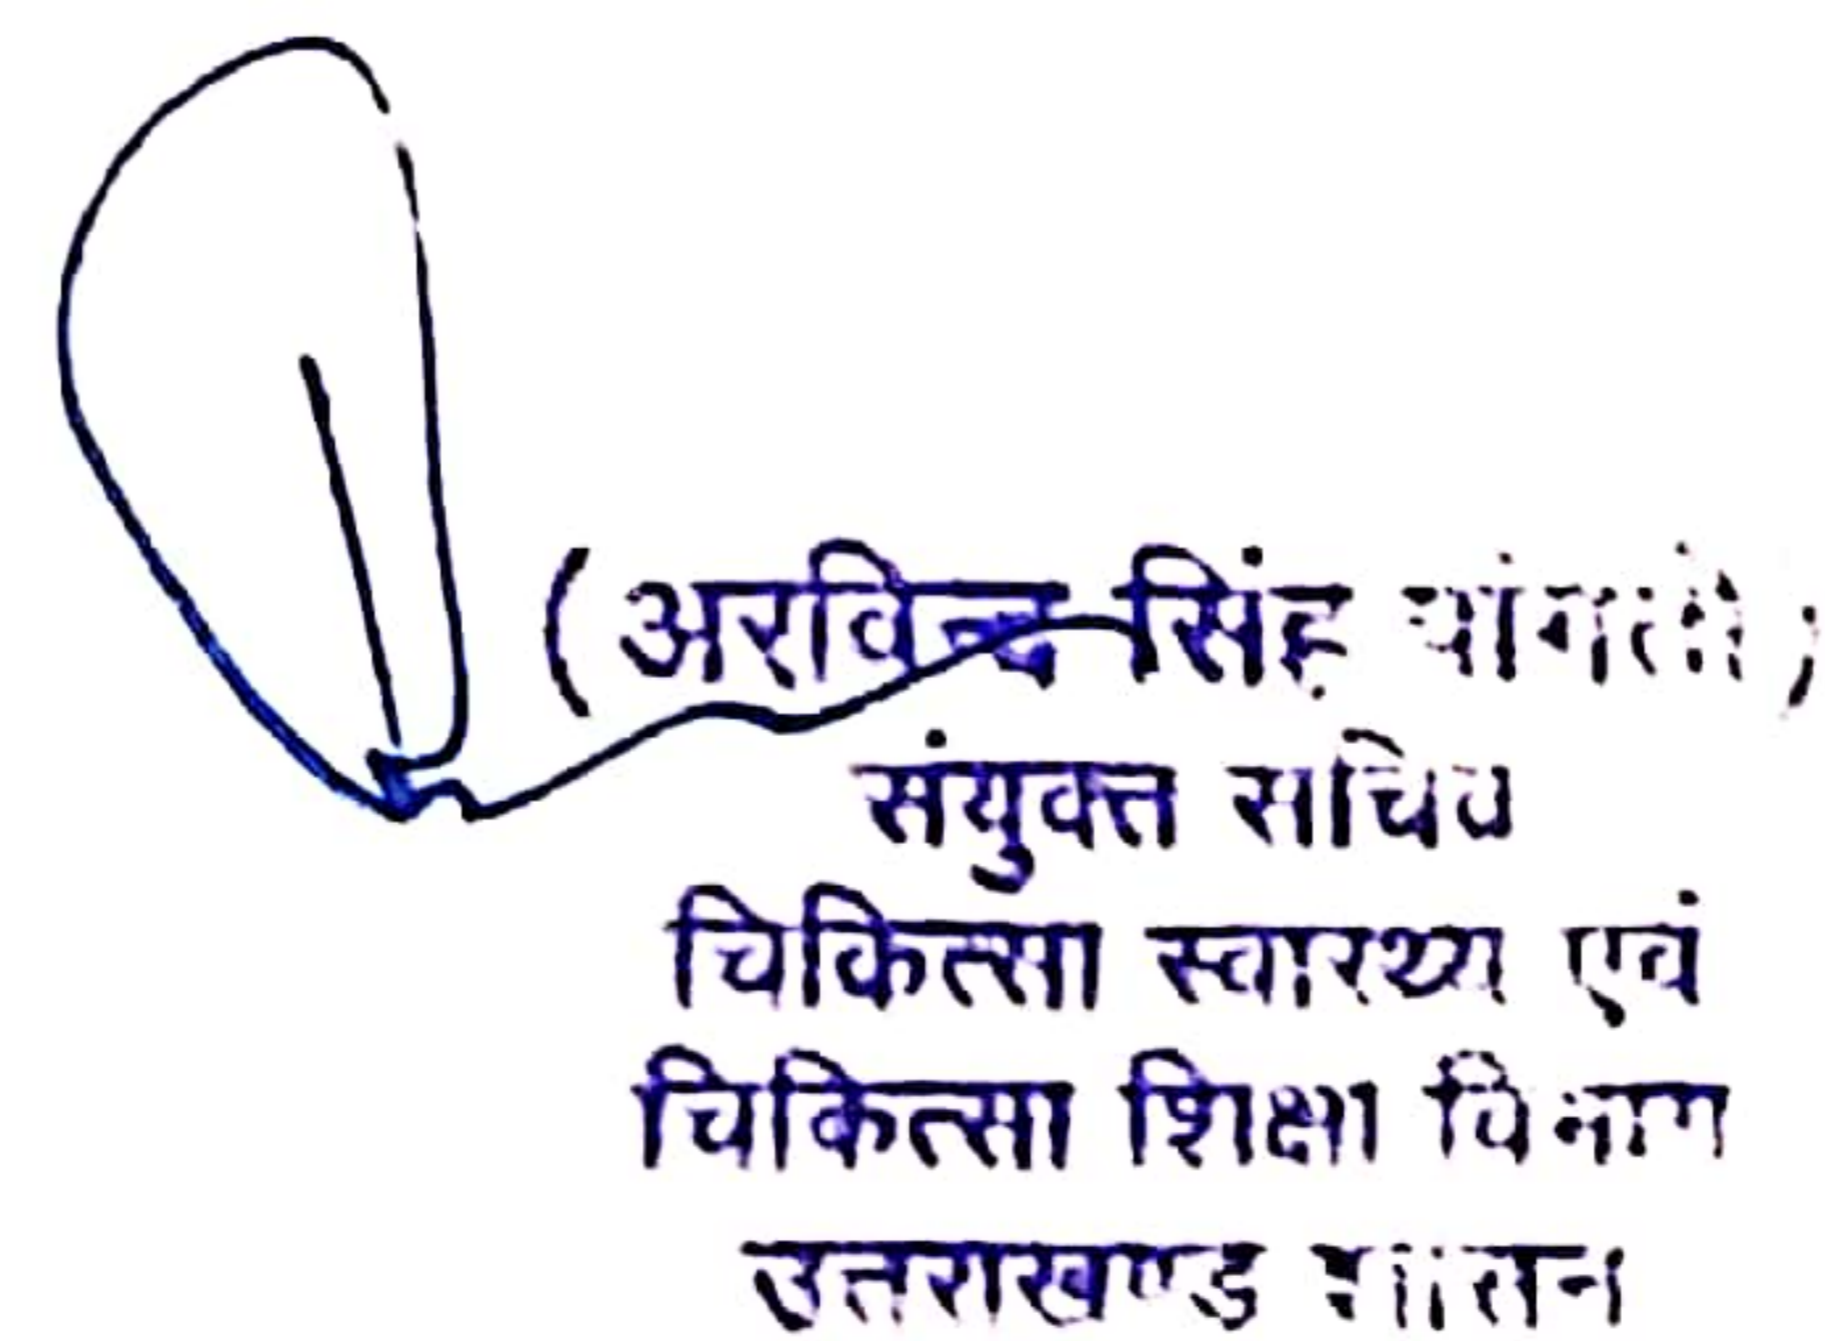 (अरविन्द सिंह पांगती)
संयुक्त सचिव
चिकित्सा स्वास्थ्य एवं
चिकित्सा शिक्षा विभाग
उत्तराखण्ड शासन